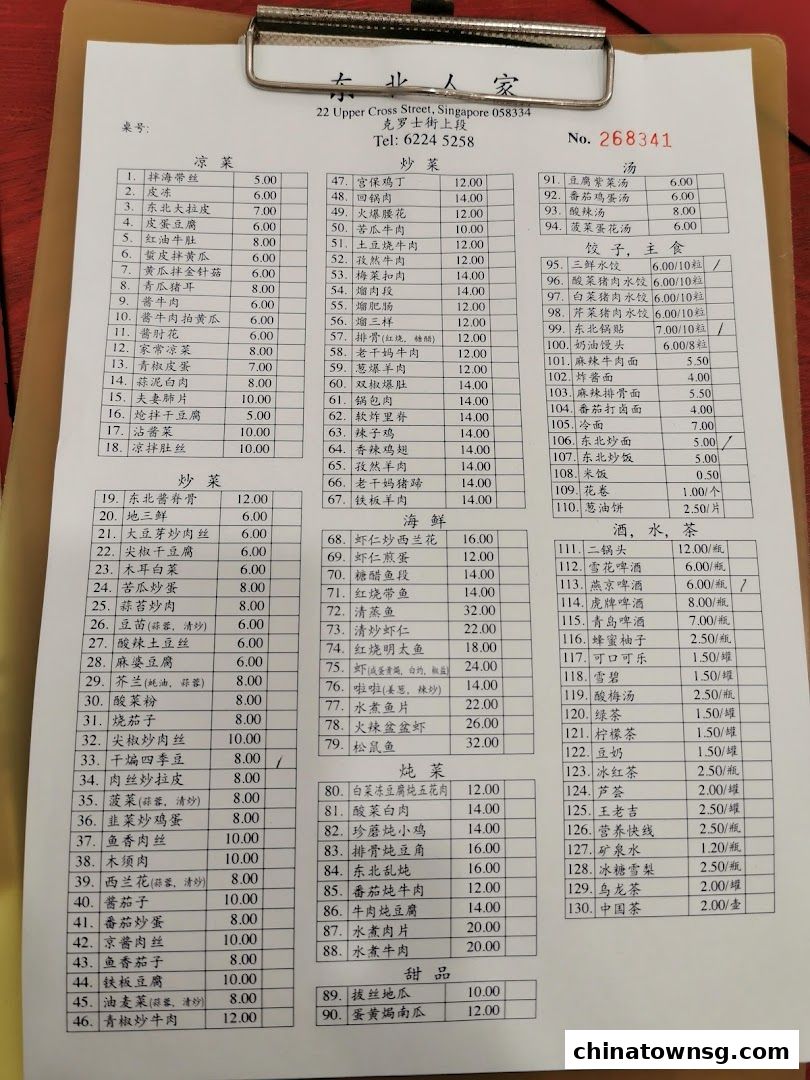 东北人家
22 Upper Cross Street, Singapore 058334
克罗士街上段
桌号:
Tel: 6224 5258
No. 268341
凉菜
1. 拌海带丝 5.00
2. 皮冻 6.00
3. 东北大拉皮 7.00
4. 皮蛋豆腐 6.00
5. 红油牛肚 8.00
6. 蜇皮拌黄瓜 6.00
7. 黄瓜拌金针菇 6.00
8. 青瓜猪耳 8.00
9. 酱牛肉 6.00
10. 酱牛肉拍黄瓜 6.00
11. 酱肘花 6.00
12. 家常凉菜 8.00
13. 青椒皮蛋 7.00
14. 蒜泥白肉 8.00
15. 夫妻肺片 10.00
16. 炝拌干豆腐 5.00
17. 沾酱菜 10.00
18. 凉拌肚丝 10.00
炒菜
19. 东北酱脊骨 12.00
20. 地三鲜 6.00
21. 大豆芽炒肉丝 6.00
22. 尖椒干豆腐 6.00
23. 木耳白菜 6.00
24. 苦瓜炒蛋 8.00
25. 蒜苔炒肉 8.00
26. 豆苗(蒜蓉，清炒) 6.00
27. 酸辣土豆丝 6.00
28. 麻婆豆腐 6.00
29. 芥兰(蚝油，蒜蓉) 8.00
30. 酸菜粉 8.00
31. 烧茄子 8.00
32. 尖椒炒肉丝 10.00
33. 干煸四季豆 8.00 /
34. 肉丝炒拉皮 8.00
35. 菠菜(蒜蓉，清炒) 8.00
36. 韭菜炒鸡蛋 8.00
37. 鱼香肉丝 10.00
38. 木须肉 10.00
39. 西兰花(蒜蓉，清炒) 8.00
40. 酱茄子 10.00
41. 番茄炒蛋 8.00
42. 京酱肉丝 10.00
43. 鱼香茄子 8.00
44. 铁板豆腐 10.00
45. 油麦菜(蒜蓉，清炒) 8.00
46. 青椒炒牛肉 12.00
炒菜
47. 宫保鸡丁 12.00
48. 回锅肉 14.00
49. 火爆腰花 12.00
50. 苦瓜牛肉 10.00
51. 土豆烧牛肉 12.00
52. 孜然牛肉 12.00
53. 梅菜扣肉 14.00
54. 熘肉段 14.00
55. 熘肥肠 12.00
56. 熘三样 12.00
57. 排骨(红烧，糖醋) 12.00
58. 老干妈牛肉 12.00
59. 葱爆羊肉 12.00
60. 双椒爆肚 14.00
61. 锅包肉 14.00
62. 软炸里脊 14.00
63. 辣子鸡 14.00
64. 香辣鸡翅 14.00
65. 孜然羊肉 14.00
66. 老干妈猪蹄 14.00
67. 铁板羊肉 14.00
海鲜
68. 虾仁炒西兰花 16.00
69. 虾仁煎蛋 12.00
70. 糖醋鱼段 14.00
71. 红烧带鱼 14.00
72. 清蒸鱼 32.00
73. 清炒虾仁 22.00
74. 红烧明太鱼 18.00
75. 虾(咸蛋黄焗，白灼，椒盐) 24.00
76. 啦啦(姜葱，辣炒) 14.00
77. 水煮鱼片 22.00
78. 火辣盆盆虾 26.00
79. 松鼠鱼 32.00
炖菜
80. 白菜冻豆腐炖五花肉 12.00
81. 酸菜白肉 14.00
82. 珍蘑炖小鸡 14.00
83. 排骨炖豆角 16.00
84. 东北乱炖 16.00
85. 番茄炖牛肉 12.00
86. 牛肉炖豆腐 14.00
87. 水煮肉片 20.00
88. 水煮牛肉 20.00
甜品
89. 拔丝地瓜 10.00
90. 蛋黄焗南瓜 12.00
汤
91. 豆腐紫菜汤 6.00
92. 番茄鸡蛋汤 6.00
93. 酸辣汤 8.00
94. 菠菜蛋花汤 6.00
饺子，主食
95. 三鲜水饺 6.00/10粒 /
96. 酸菜猪肉水饺 6.00/10粒
97. 白菜猪肉水饺 6.00/10粒
98. 芹菜猪肉水饺 6.00/10粒
99. 东北锅贴 7.00/10粒 /
100. 奶油馒头 6.00/8粒
101. 麻辣牛肉面 5.50
102. 炸酱面 4.00
103. 麻辣排骨面 5.50
104. 番茄打卤面 4.00
105. 冷面 7.00
106. 东北炒面 5.00 /
107. 东北炒饭 5.00
108. 米饭 0.50
109. 花卷 1.00/个
110. 葱油饼 2.50/片
酒，水，茶
111. 二锅头 12.00/瓶
112. 雪花啤酒 6.00/瓶
113. 燕京啤酒 6.00/瓶 1
114. 虎牌啤酒 8.00/瓶
115. 青岛啤酒 7.00/瓶
116. 蜂蜜柚子 2.50/瓶
117. 可口可乐 1.50/罐
118. 雪碧 1.50/罐
119. 酸梅汤 2.50/瓶
120. 绿茶 1.50/罐
121. 柠檬茶 1.50/罐
122. 豆奶 1.50/罐
123. 冰红茶 2.50/瓶
124. 芦荟 2.00/罐
125. 王老吉 2.50/罐
126. 营养快线 2.50/瓶
127. 矿泉水 1.20/瓶
128. 冰糖雪梨 2.50/瓶
129. 乌龙茶 2.00/罐
130. 中国茶 2.00/壶
chinatownsg.com